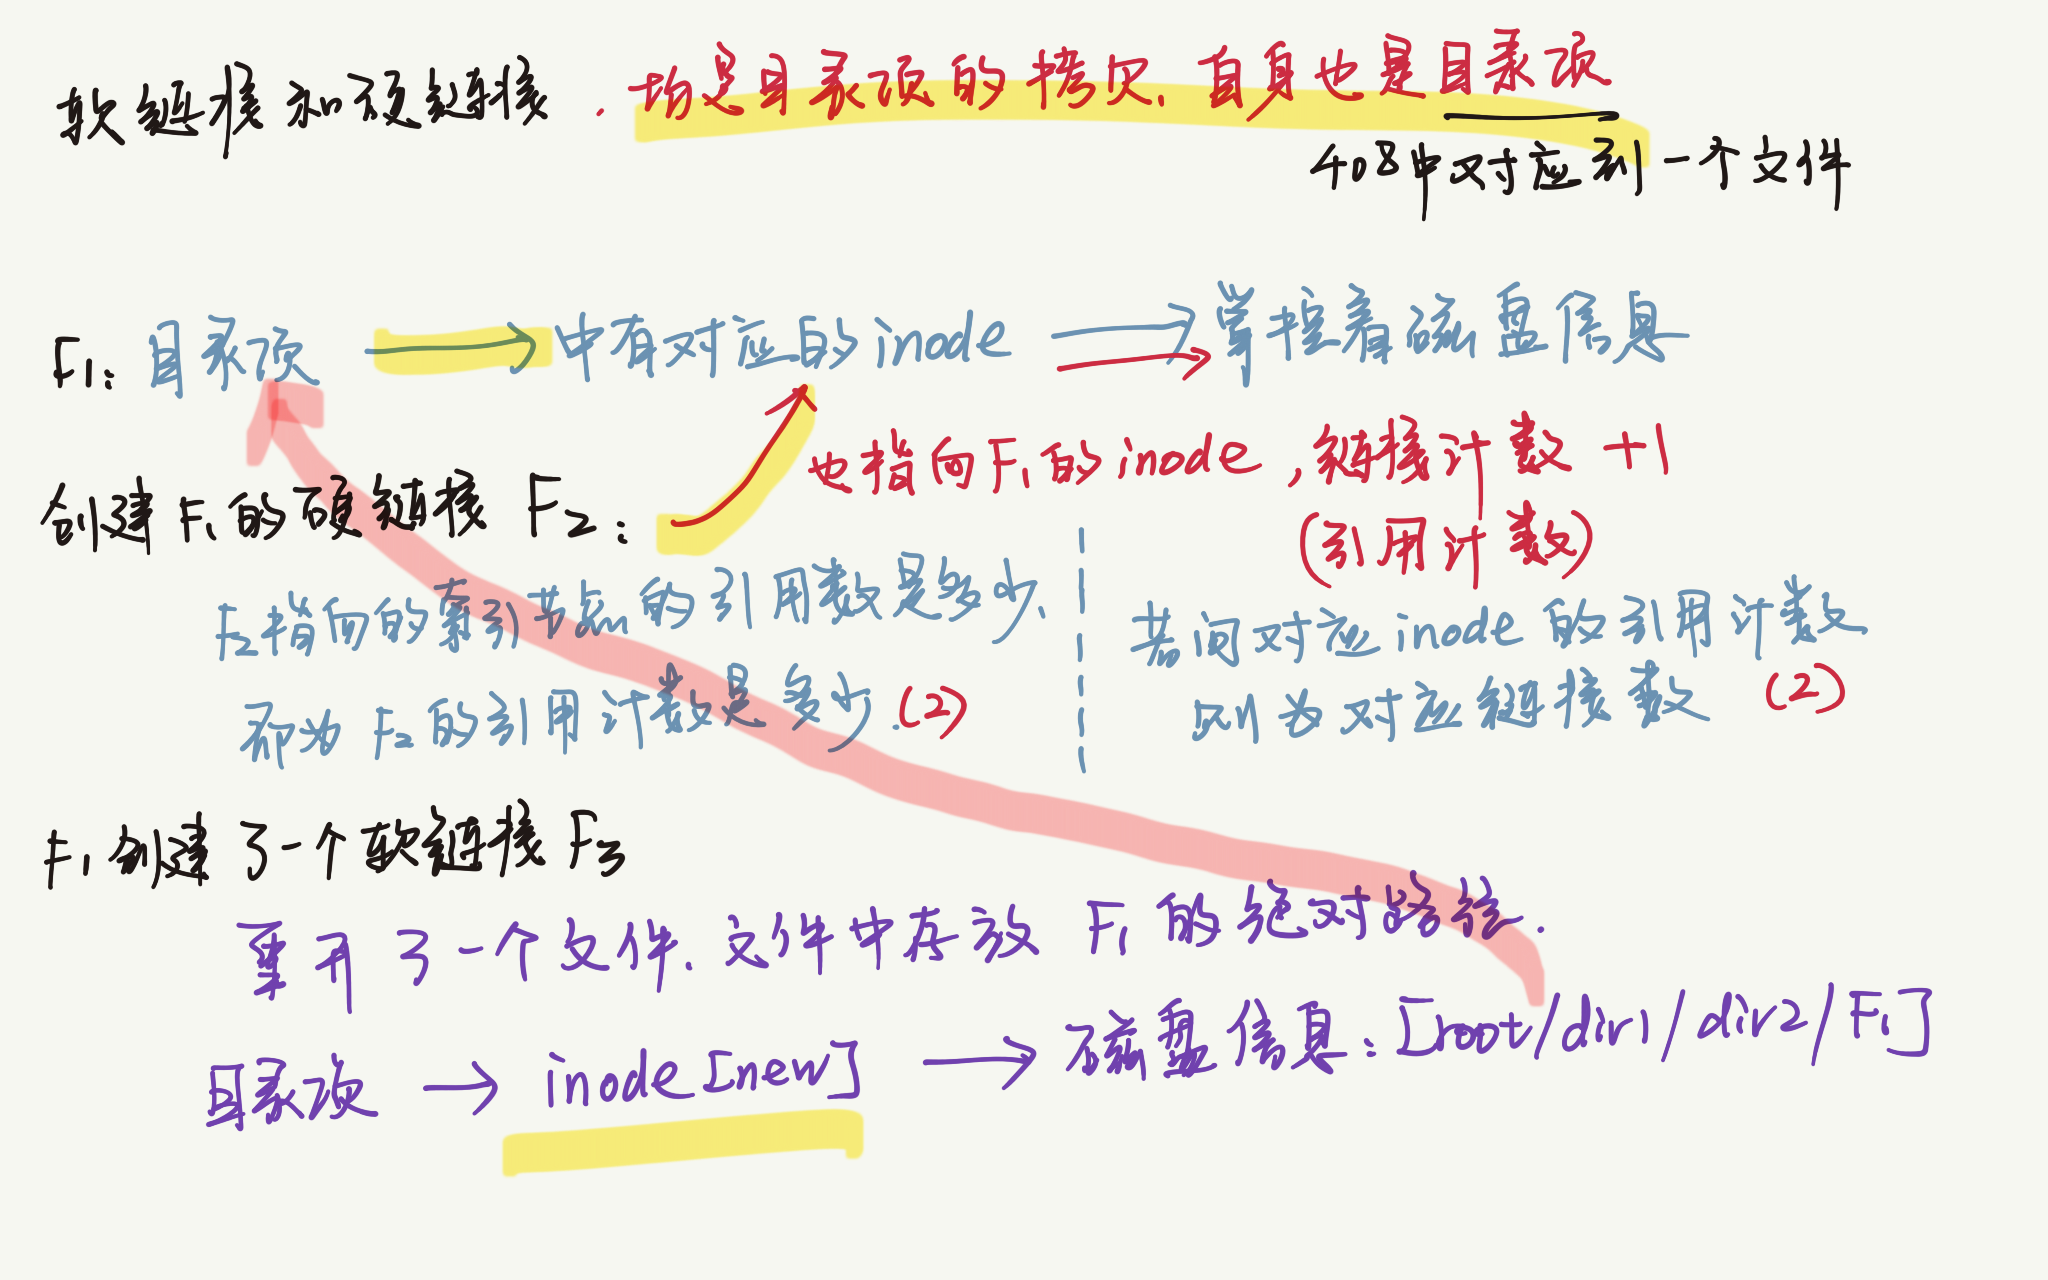 软链接和硬链接. 均是目录项的拷贝. 自身也是目录项
408中对应到一个文件
F1: 目录项 → 中有对应的inode → 掌控着磁盘信息
也指向F1的inode, 链接计数 +1
创建F1的硬链接 F2:
(引用计数)
F2指向的索引节点的引用数是多少.
都为 F2的引用计数是多少. (2)
若问对应inode的引用计数
则为对应链接数 (2)
F1创建了一个软链接 F3
重开了一个文件. 文件中存放 F1的绝对路径.
目录项 → inode[new] → 磁盘信息: [root/dir1/dir2/F1]